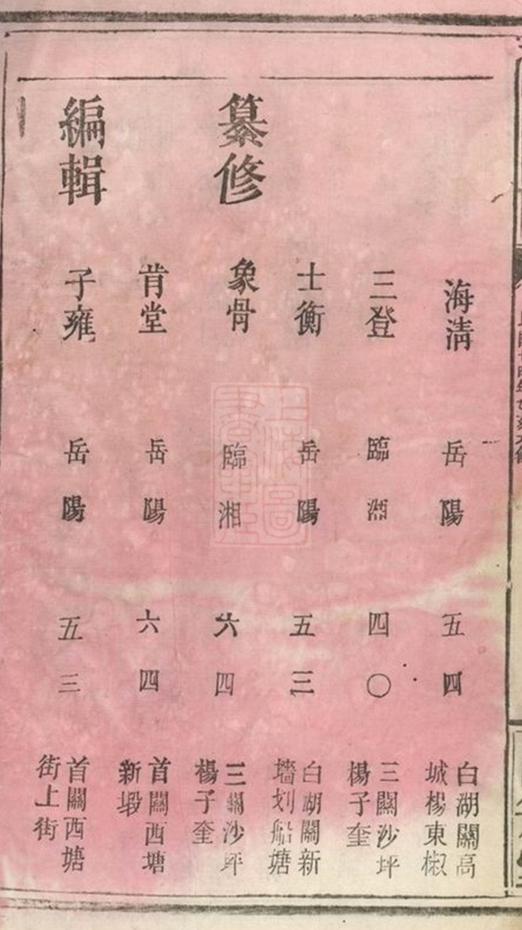 海清 岳陽 五四 白湖關高城楊東椒
三登 臨湘 四〇 三關沙坪楊子奎
士衡 岳陽 五三 白湖關新墻划船塘
纂修 象骨 臨湘 六四 三關沙坪楊子奎
肯堂 岳陽 六四 首關西塘新塅
編輯 子雍 岳陽 五三 首關西塘街上街